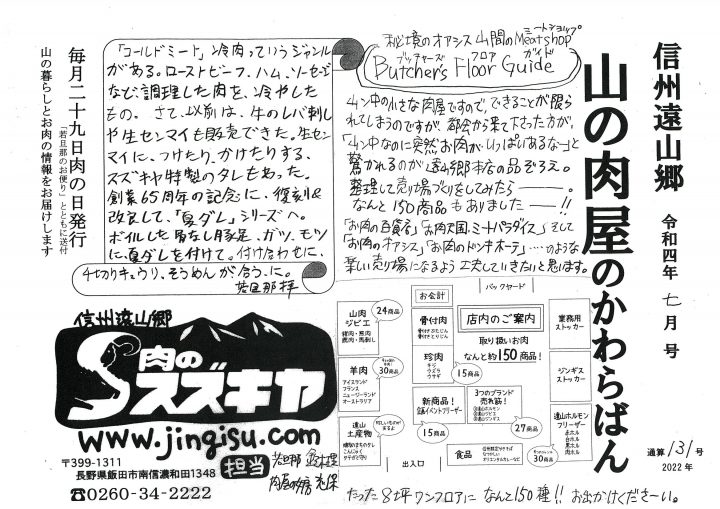 信州遠山郷
令和四年 七月号
山の肉屋のかわらばん
通算131号
2022年
秘境のオアシス山間のMeatshop
ミートショップ
Butcher's Floor Guide
ブッチャーズ フロア ガイド
山ン中の小さな肉屋ですので、できることが限ら
れてしまうのですが、都会から来て下さった方が、
「山ン中なのに突然お肉がいっぱいあるな~」と
驚かれるのが遠山郷本店の品ぞろえ。
整理して売り場づくりをしてみたら―――。
なんと150商品もありました――!!
「お肉の百貨店」「お肉天国、ミートパラダイス」そして
「お肉のオアシス」「お肉のドンキホーテ」…のような
楽しい売り場になるよう工夫していきたいと思います。
「コールドミート」、冷肉っていうジャンル
がある。ローストビーフ、ハム、ソーセージ
など、調理した肉を、冷やした
もの。さて、以前は、牛のレバ刺し
や生センマイも販売できた。生セン
マイに、つけたり、かけたりする、
スズキヤ特製のタレもあった。
創業65周年の記念に、復刻&
改良して、「夏ダレ」シリーズへ。
ボイルした豚足、ガツ、モツ
に夏ダレを付けて。付け合わせに、
4切りキュウリ、そうめんが合う、に。
若旦那 拝
毎月二十九日肉の日発行
「若旦那のお便り」とともに送付
山の暮らしとお肉の情報をお届けします
バックヤード
お会計
店内のご案内
取り扱いお肉
なんと約150商品!
山肉
ジビエ
24商品
猪肉・熊肉
鹿肉・馬刺し
羊肉
30商品
アイスランド
フランス
ニュージーランド
オーストラリア
遠山
土産物
こんにゃく
骨付肉
珍肉
キジ
ウズラ
ウサギ
15商品
新商品!
イベントフリーザー
15商品
3つのブランド
売れ筋!
遠山ジンギス
27商品
食品
業務用
ストッカー
ジンギス
ストッカー
遠山ホルモン
フリーザー
赤ホル
白ホル
黒ホル
肉ホル
30商品
出入口
たった8坪ワンフロアに なんと150種!! お出かけくださーい。
信州遠山郷
肉の
スズキヤ
www.jingisu.com
〒399-1311
長野県飯田市南信濃和田1348
☎0260-34-2222
担当
若旦那